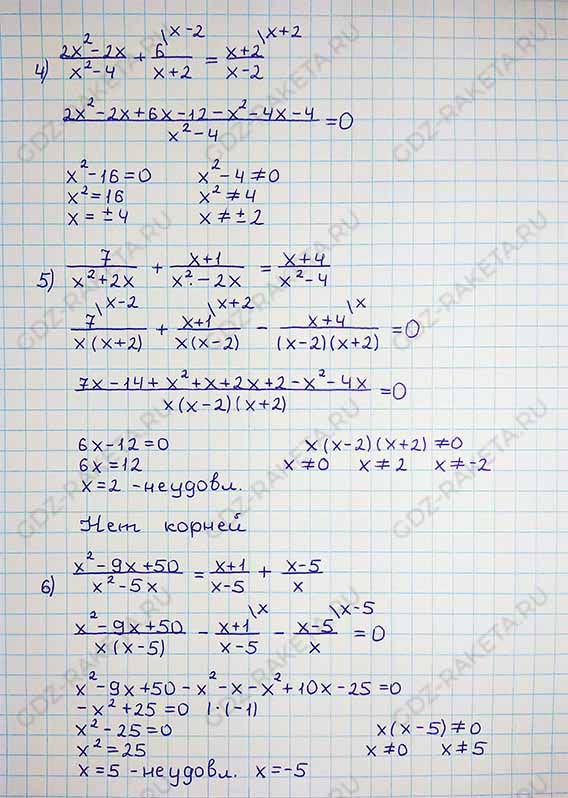 4) (2x²-2x)/(x²-4) + 6\x-2/(x+2) = (x+2)\x+2/(x-2)
(2x²-2x+6x-12-x²-4x-4)/(x²-4) = 0
x²-16=0 x²-4≠0
x²=16 x²≠4
x=±4 x≠±2
5) 7/(x²+2x) + (x+1)/(x²-2x) = (x+4)/(x²-4)
7\x-2/(x(x+2)) + (x+1)\x+2/(x(x-2)) - (x+4)\x/((x-2)(x+2)) = 0
(7x-14+x²+x+2x+2-x²-4x)/(x(x-2)(x+2)) = 0
6x-12=0 x(x-2)(x+2)≠0
6x=12 x≠0 x≠2 x≠-2
x=2 -неудовл.
Нет корней
6) (x²-9x+50)/(x²-5x) = (x+1)/(x-5) + (x-5)/x
(x²-9x+50)/(x(x-5)) - (x+1)\x/(x-5) - (x-5)\x-5/x = 0
x²-9x+50-x²-x-x²+10x-25=0
-x²+25=0 |·(-1)
x²-25=0 x(x-5)≠0
x²=25 x≠0 x≠5
x=5 -неудовл. x=-5
GDZ-RAKETA.RU